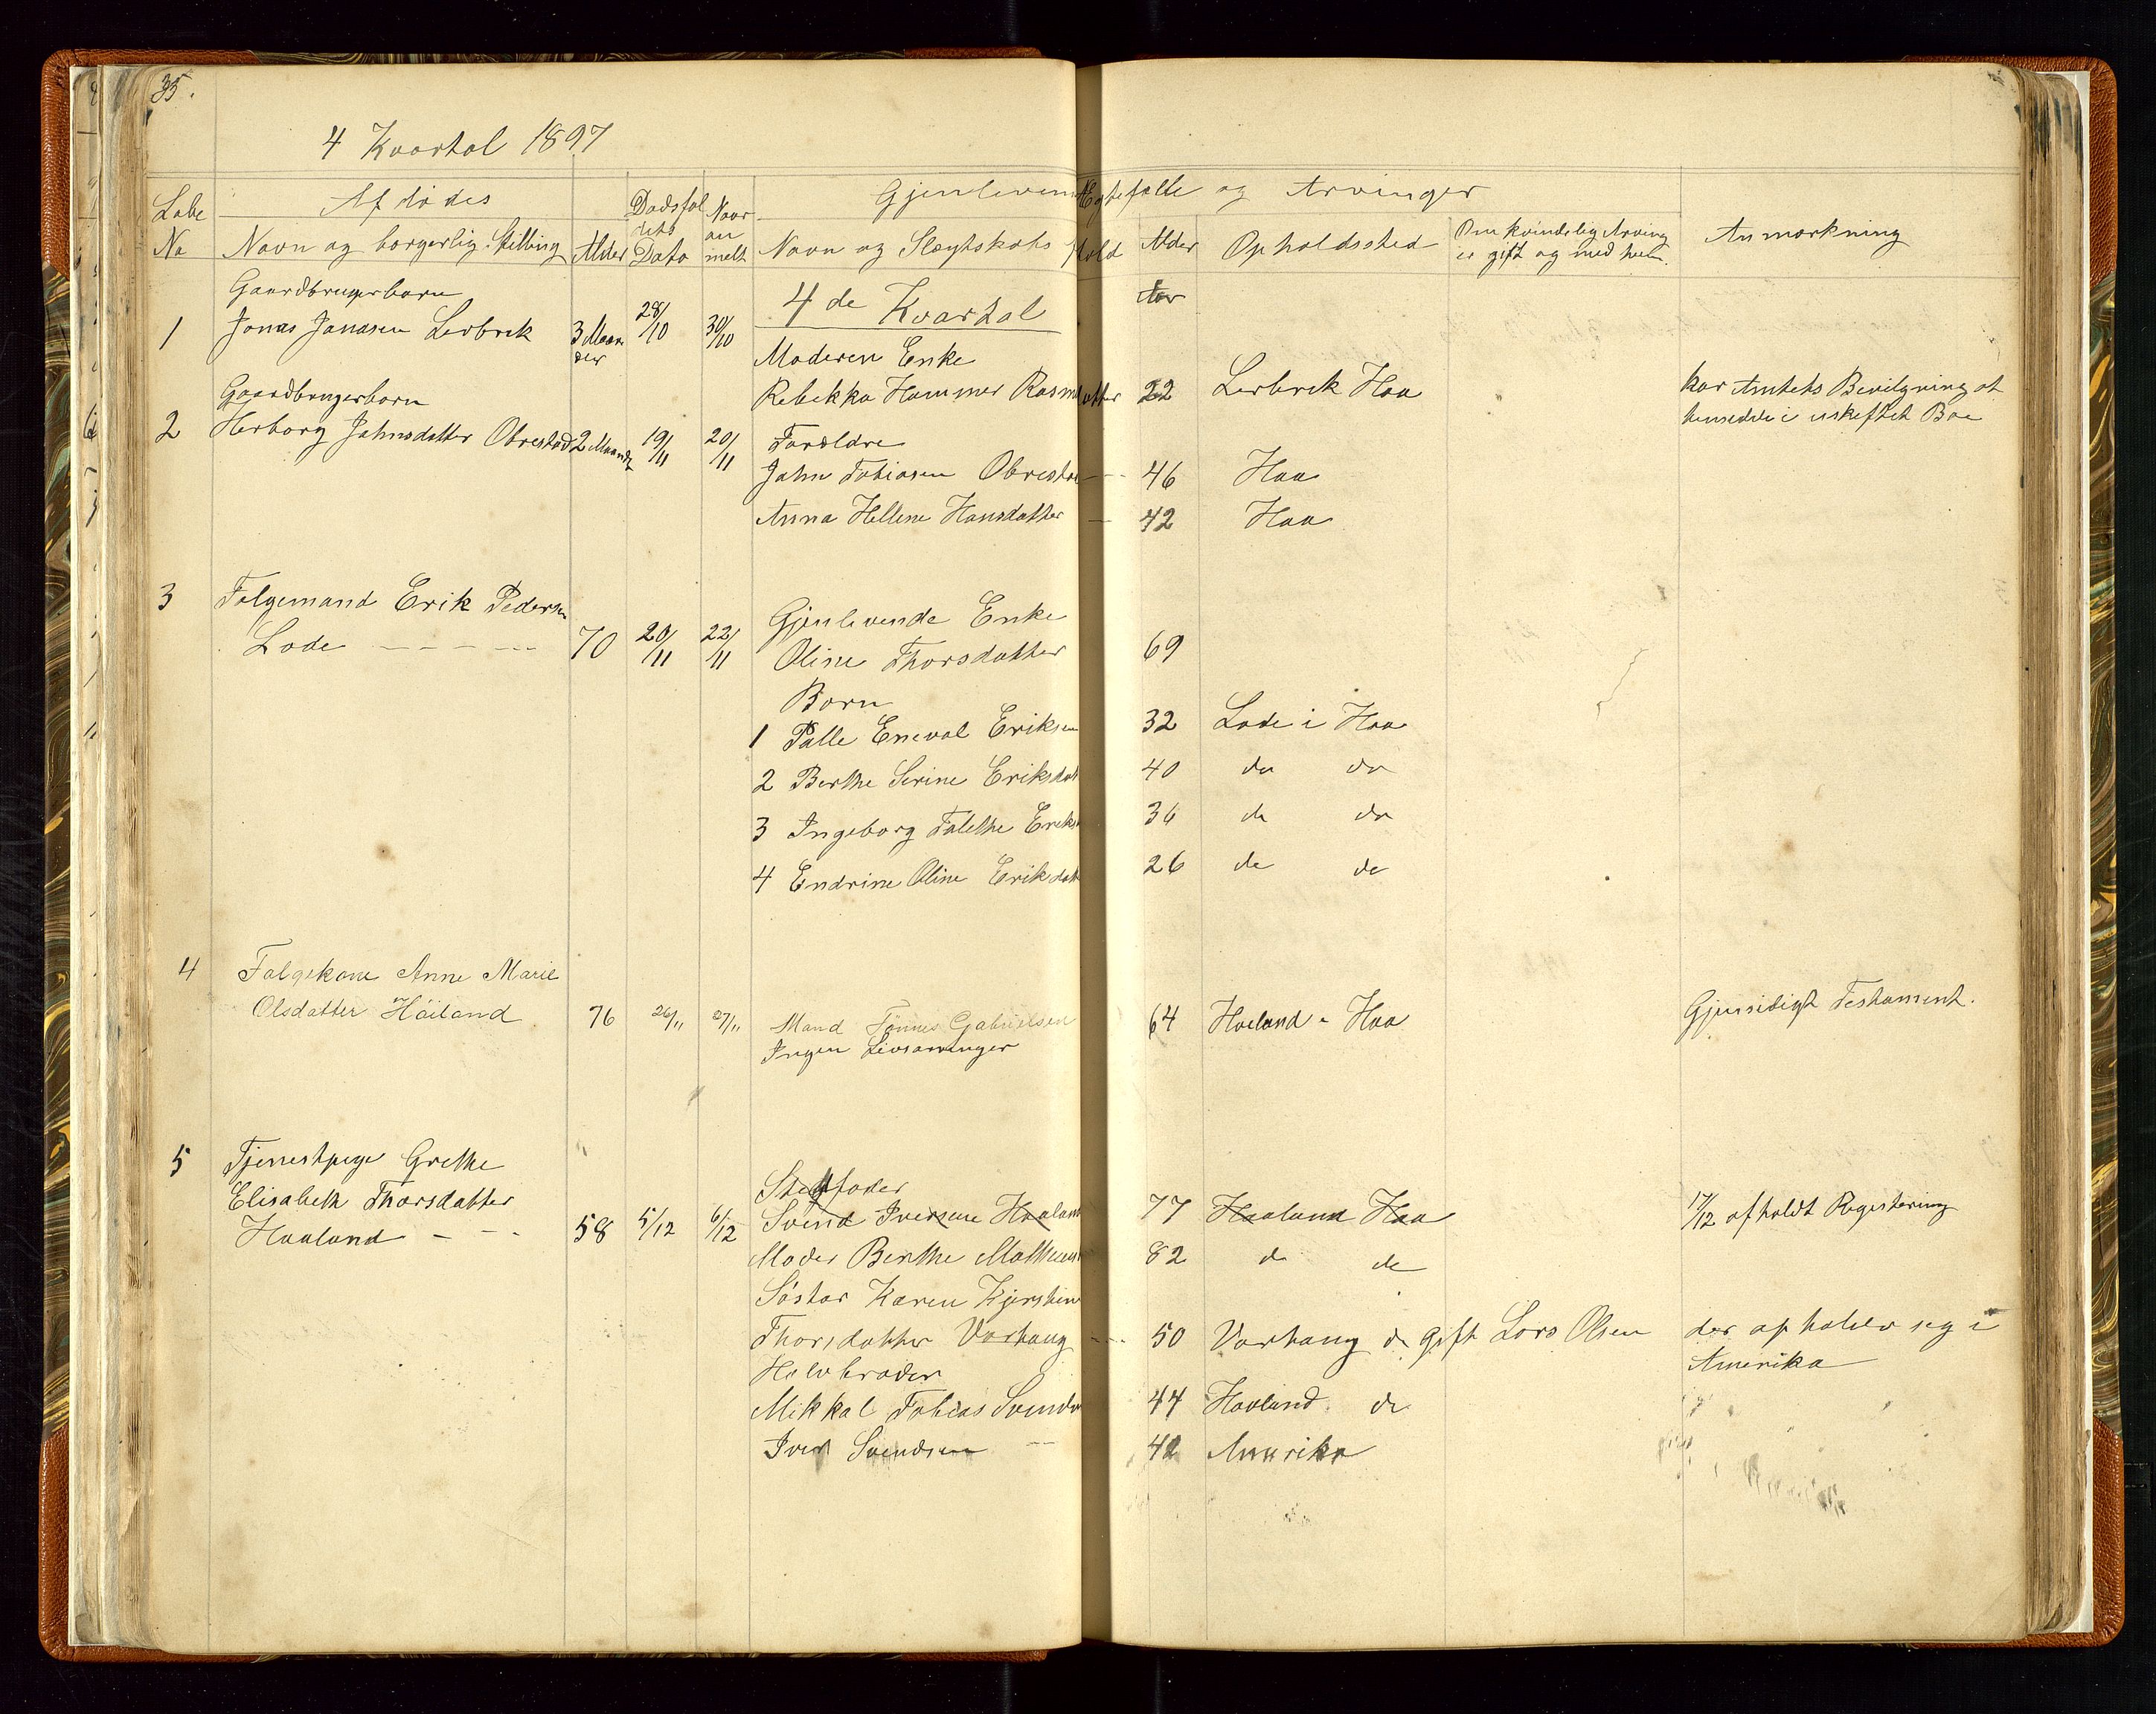 35.
4 Kvartal 1897
Løbe No
Afdødes
Navn og borgerlig Stilling
Alder
Dødsfaldets Dato
Naar anmelt
Gjenlevende Ægtefælle og Arvinger
Navn og Slægtskabsforhold
Alder
Opholdssted
Om kvindelig Arving er gift og med hvem
Anmærkning
4de Kvartal
Gaardbrugerbarn
1 Jonas Jonasen Lerbrek 3 Maaneder 28/10 30/10
Moderen Enke
Rebekka Hammer Rasmdatter 22 Lerbrek Haa har Amtets Bevilgning at
hensidde i uskiftet Boe
Gaardbrugerbarn
2 Herborg Jahnsdatter Obrestad 2 Maaneder 19/11 20/11 Forældre
Jahn Tobiasen Obrestad 46 Haa
Anna Hellene Hansdatter 42 Haa
3 Følgemand Erik Pedersen
Lode 70 20/11 22/11
Gjenlevende Enke
Oline Thorsdatter 69
Børn
1 Palle Eneval Eriksen 32 Lode i Haa
2 Berthe Serine Eriksdat 40 do do
3 Ingeborg Talethe Eriks 36 do do
4 Endrine Oline Eriksdat 26 do do
4 Følgekone Anne Marie
Olsdatter Høiland 76 26/11 27/11 Mand Tønnes Gabrielsen 64 Høeland Haa Gjensidigt Testament.
Ingen Livsarvinger
5 Tjenestpige Grethe
Elisabeth Thorsdatter
Haaland 58 5/12 6/12
Stedfader
Svend Iversen Haaland 77 Haaland Haa 17/12 afholdt Registering
Moder Berthe 82 do do
Søster Karen Kjerstine
Thorsdatter Varhaug 50 Varhaug do gift Lars Olsen der opholder seg i
Amerika
Halvbroder
Mikkal Tobias Svends 44 Haaland do
Iver Svendsen 42 Amerika